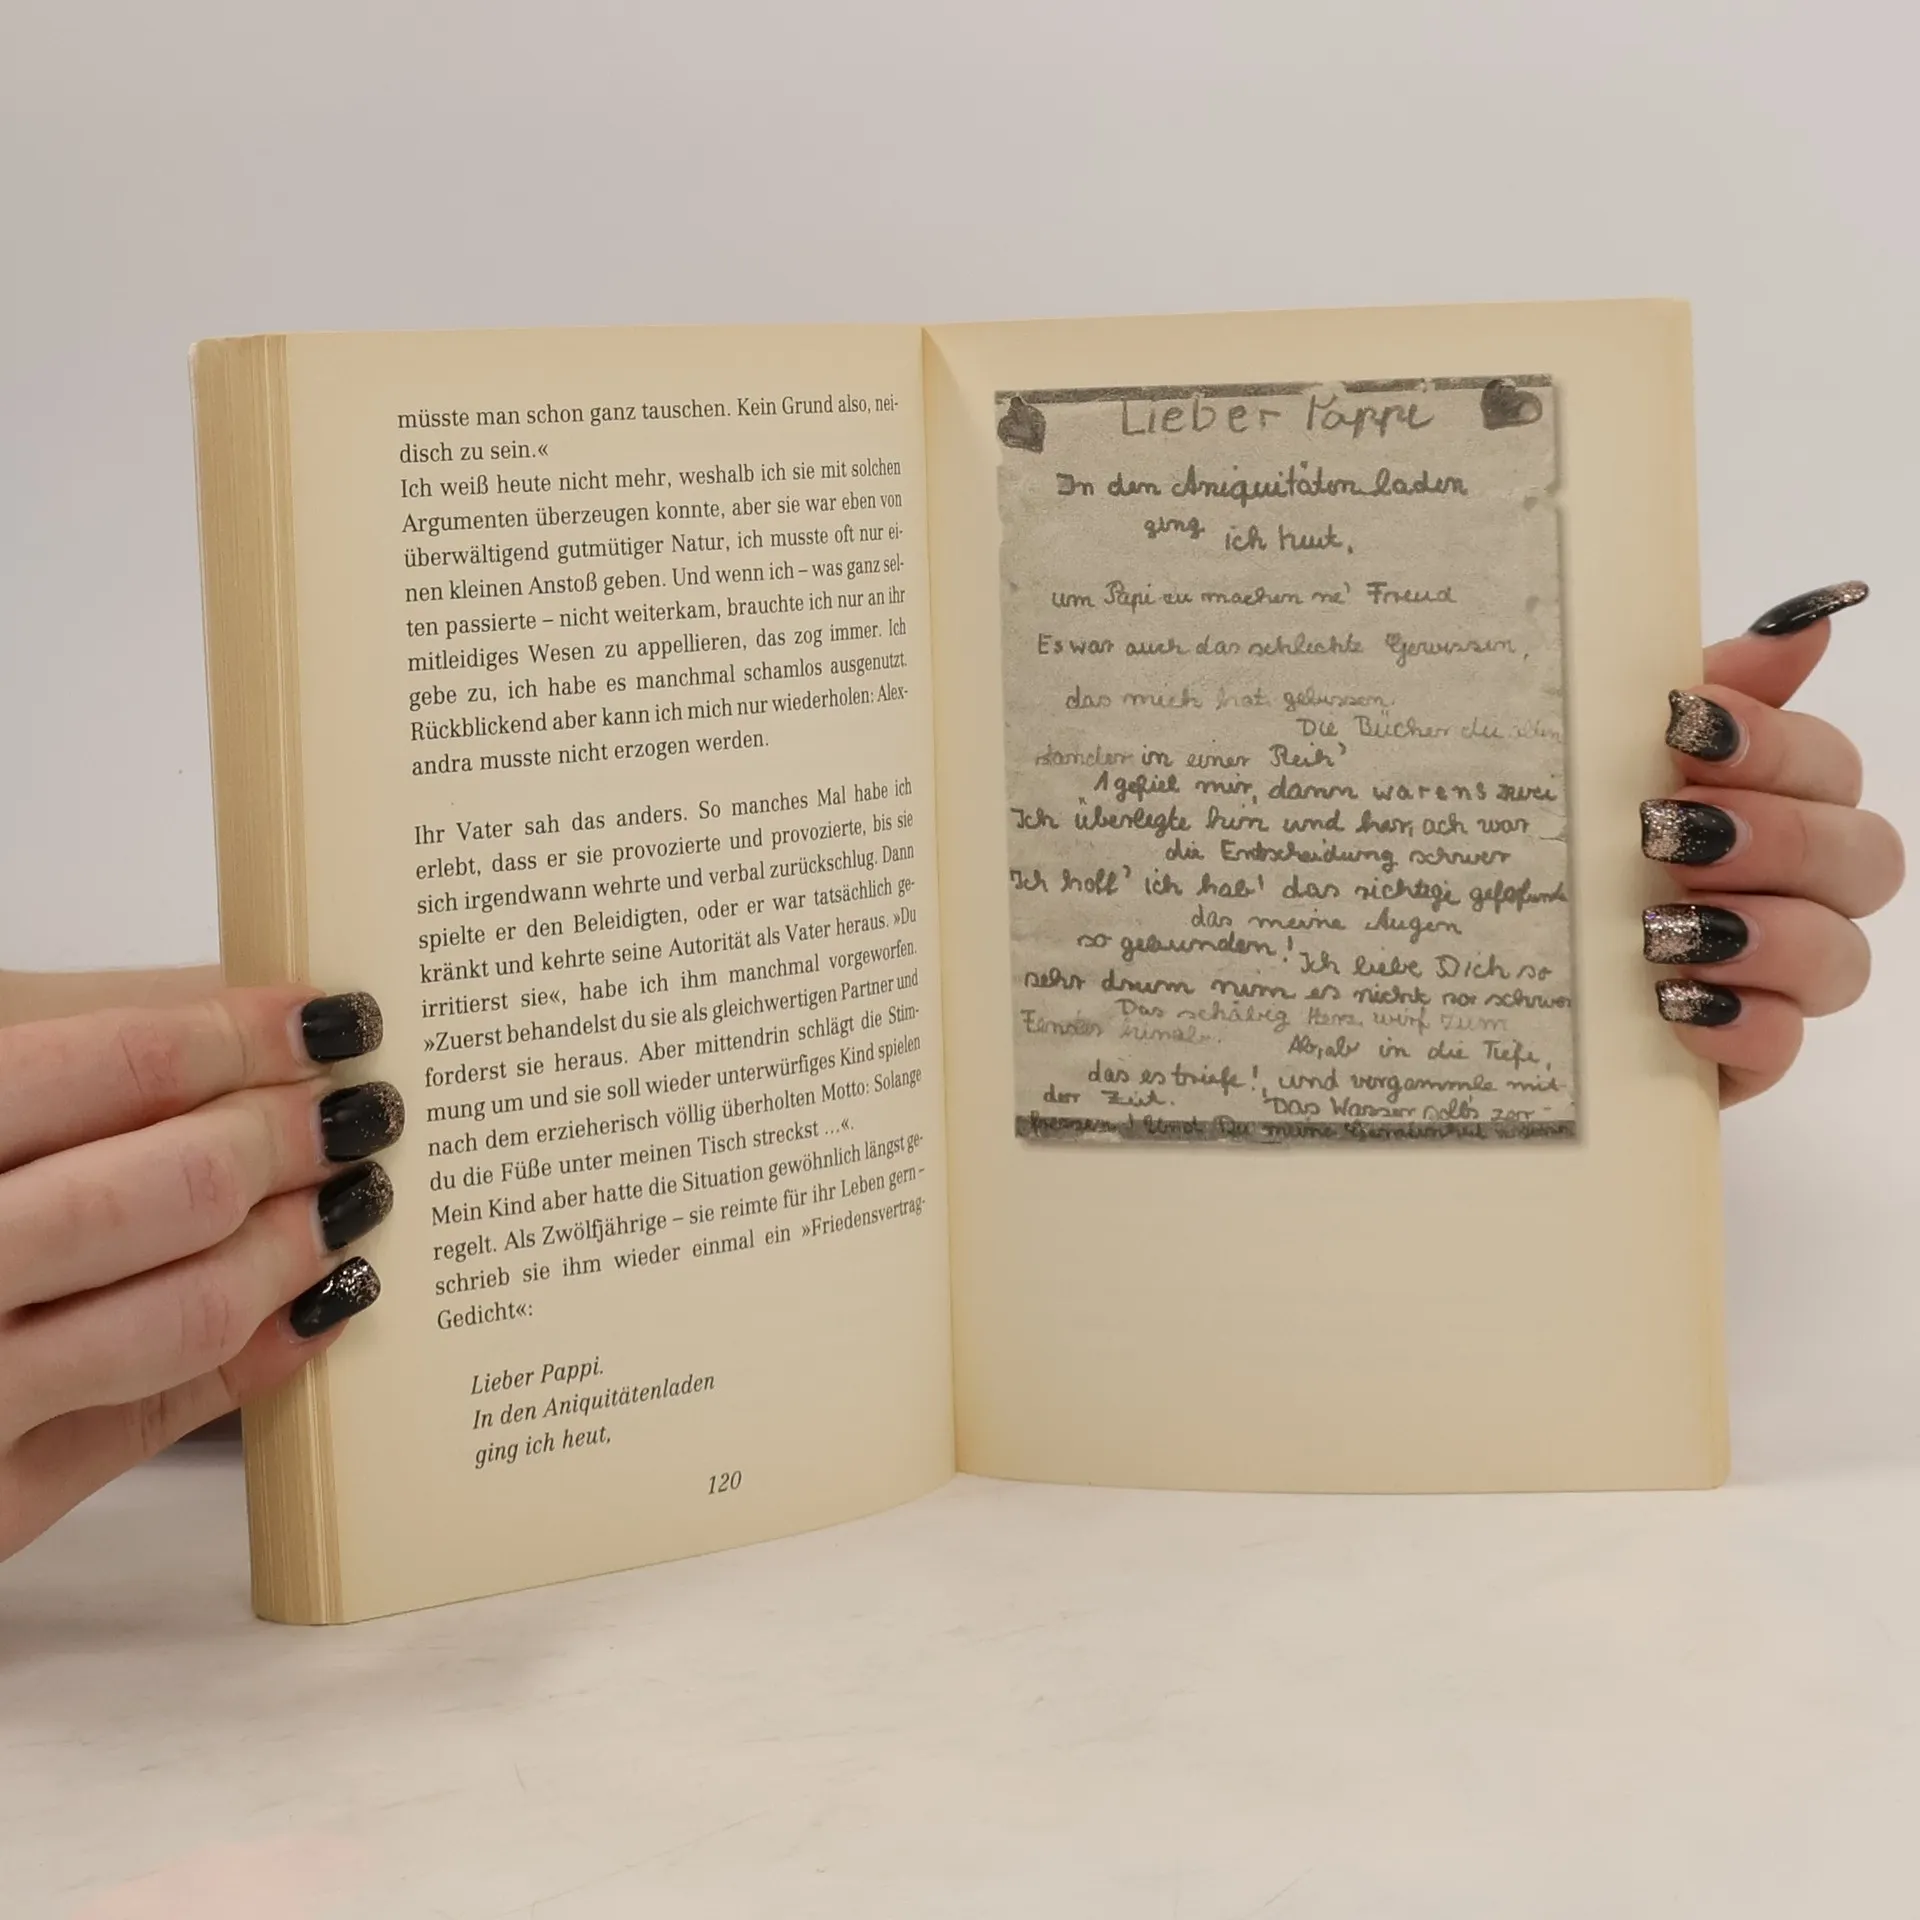 müsste man schon ganz tauschen. Kein Grund also, nei-
disch zu sein.«
Ich weiß heute nicht mehr, weshalb ich sie mit solchen
Argumenten überzeugen konnte, aber sie war eben von
überwältigend gutmütiger Natur, ich musste oft nur ei-
nen kleinen Anstoß geben. Und wenn ich – was ganz sel-
ten passierte – nicht weiterkam, brauchte ich nur an ihr
mitleidiges Wesen zu appellieren, das zog immer. Ich
gebe zu, ich habe es manchmal schamlos ausgenutzt.
Rückblickend aber kann ich mich nur wiederholen: Alex-
andra musste nicht erzogen werden.
Ihr Vater sah das anders. So manches Mal habe ich
erlebt, dass er sie provozierte und provozierte, bis sie
sich irgendwann wehrte und verbal zurückschlug. Dann
spielte er den Beleidigten, oder er war tatsächlich ge-
kränkt und kehrte seine Autorität als Vater heraus. »Du
irritierst sie«, habe ich ihm manchmal vorgeworfen.
»Zuerst behandelst du sie als gleichwertigen Partner und
forderst sie heraus. Aber mittendrin schlägt die Stim-
mung um und sie soll wieder unterwürfiges Kind spielen
nach dem erzieherisch völlig überholten Motto: Solange
du die Füße unter meinen Tisch streckst ...«.
Mein Kind aber hatte die Situation gewöhnlich längst ge-
regelt. Als Zwölfjährige – sie reimte für ihr Leben gern –
schrieb sie ihm wieder einmal ein »Friedensvertrag-
Gedicht«:
Lieber Pappi.
In den Aniquitätenladen
ging ich heut,
120
Lieber Pappi
In den Aniquitätenladen
ging ich heut,
um Papi zu machen ne' Freud
Es war auch das schlechte Gewissen,
das mich hat gebissen.
Die Bücher die alten
standen in einer Reih'
1 gefiel mir, dann warens zwei
Ich überlegte hin und her, ach war
die Entscheidung schwer
Ich hoff' ich hab' das richtige
das meine Augen
so gebunden!
Ich liebe Dich so
sehr drum nimm es nicht so schwer
Das schäbig Herz wirf zum
Fenster
Ab, ab in die Tiefe,
das es triefe!, und vergammle mit
der Zeit.
Das Wasser solls zer-
Und Du meine